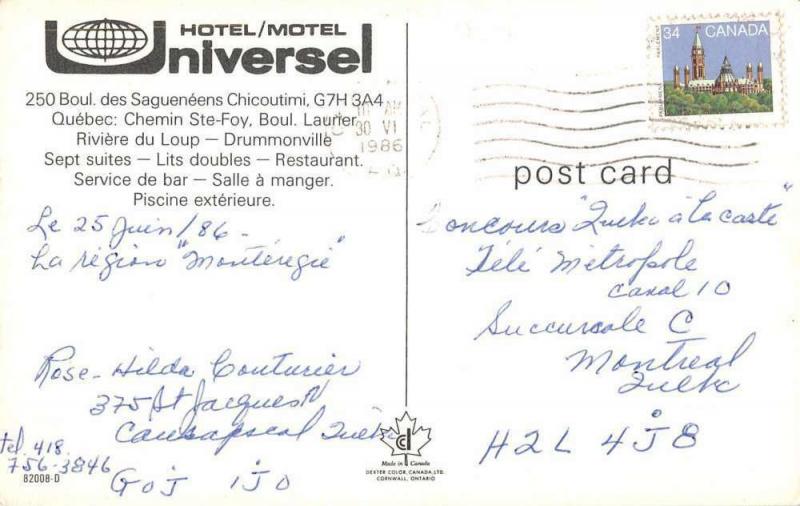 HOTEL/MOTEL
Universel
250 Boul. des Saguenéens Chicoutimi, G7H 3A4
Québec: Chemin Ste-Foy, Boul. Laurier
Rivière du Loup – Drummonville
Sept suites – Lits doubles – Restaurant.
Service de bar – Salle à manger.
Piscine extérieure.
Le 25 Juin/86-
La région "Montéregie"
Rose-Hilda Couturier
375 St Jacques N
Causapscal Québec
tel. 418.
756-3846
G0J 1J0
82008-D
Made in Canada
DEXTER COLOR, CANADA, LTD.
CORNWALL, ONTARIO
AM
30 VI
1986
34 CANADA
PARLIAMENT
PARLEMENT
post card
Concours "Quebec à la carte"
Télé Métropole
Canal 10
Succursale C
Montreal
Quebec
H2L 4J8